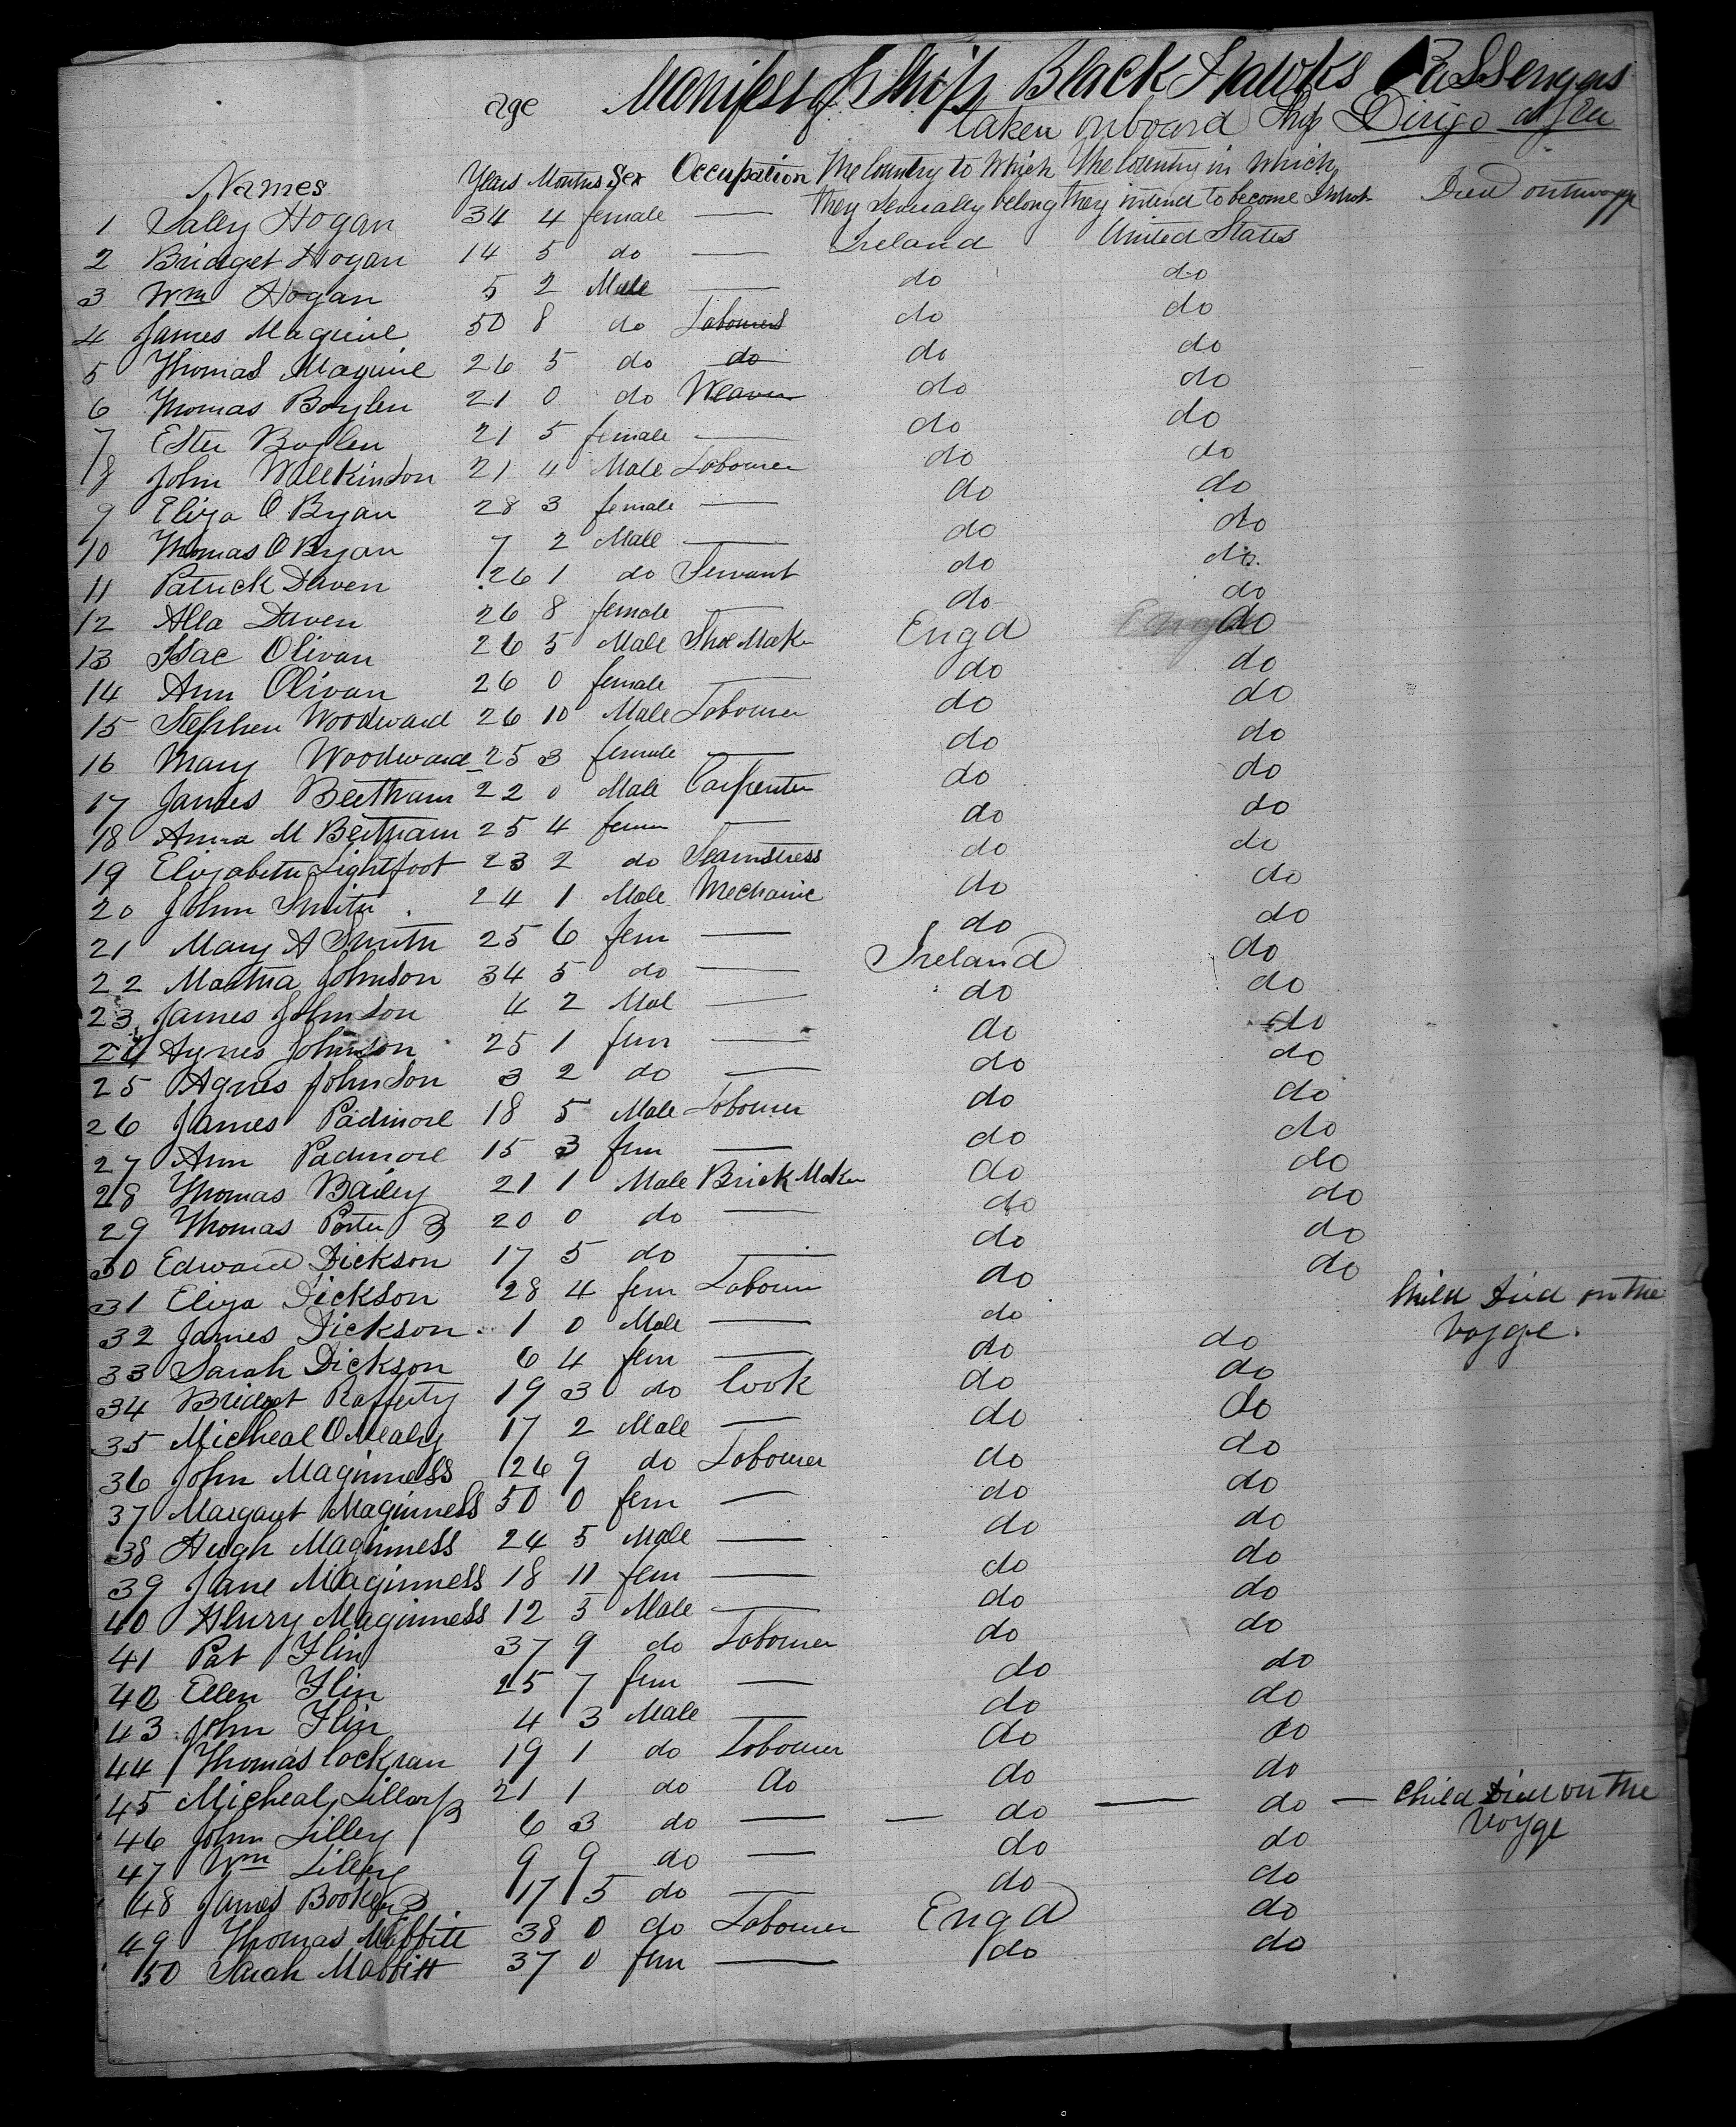 Manifest of Ship Black Hawks Passengers
taken onboard Ship Dirigo at Sea
age
Names Years Months Sex Occupation The Country to Which they severally belong The Country in which they intend to become Inhabt Died on the voyge
1 Sally Hogan 34 4 female — Ireland United States
2 Bridget Hogan 14 5 do — do do
3 Wm Hogan 5 2 Male — do do
4 James Maguire 50 8 do Labourers do do
5 Thomas Maguire 26 5 do do do do
6 Thomas Boylen 21 0 do Weaver do do
7 Ester Boylen 21 5 female — do do
8 John Willkinson 21 4 Male Labourer do do
9 Eliza O Byan 28 3 female — do do
10 Thomas O Byan 7 2 Male — do do
11 Patrick Daven 26 1 do Servant do do
12 Alla Daven 26 8 female — do do
13 Isac Olivan 26 5 Male Shoe Maker Engd do
14 Ann Olivan 26 0 female — do do
15 Stephen Woodward 26 10 Male Labourer do do
16 Mary Woodward 25 3 female — do do
17 James Beetham 22 0 Male Carpenter do do
18 Anna M Beetham 25 4 fem — do do
19 Elizabeth Lightfoot 23 2 do Seamstress do do
20 John Smith 24 1 Male Mechanic do do
21 Mary A Smith 25 6 fem — do do
22 Martha Johnson 34 5 do — Ireland do
23 James Johnson 4 2 Mal — do do
24 Agnes Johnson 25 1 fem — do do
25 Agnes Johnson 3 2 do — do do
26 James Padmore 18 5 Male Labourer do do
27 Ann Padmore 15 3 fem — do do
28 Thomas Bailey 21 1 Male Brick Maker do do
29 Thomas Porter 20 0 do — do do
30 Edward Dickson 17 5 do — do do
31 Eliza Dickson 28 4 fem Labourer do do
32 James Dickson 1 0 Male — do Child Died on the
voyge.
33 Sarah Dickson 6 4 fem — do do
34 Bridget Rafferty 19 3 do Cook do do
35 Micheal O Mealy 17 2 Male — do do
36 John Maginness 26 9 do Labourer do do
37 Margaret Maginness 50 0 fem — do do
38 Hugh Maginness 24 5 Male — do do
39 Jane Maginness 18 11 fem — do do
40 Henry Maginness 12 5 Male — do do
41 Pat Flin 37 9 do Labourer do do
42 Ellen Flin 25 7 fem — do do
43 John Flin 4 3 Male — do do
44 Thomas Cockran 19 1 do Labourer do do
45 Micheal 21 1 do do do do
46 John Lilley 6 3 do — — do — do — Child Died on the
Voyge
47 Wm Lilley 9 9 do — do do
48 James Booker 17 5 do — do do
49 Thomas Mabbitt 38 0 do Labourer Engd do
50 Sarah Mabbitt 37 0 fem — do do